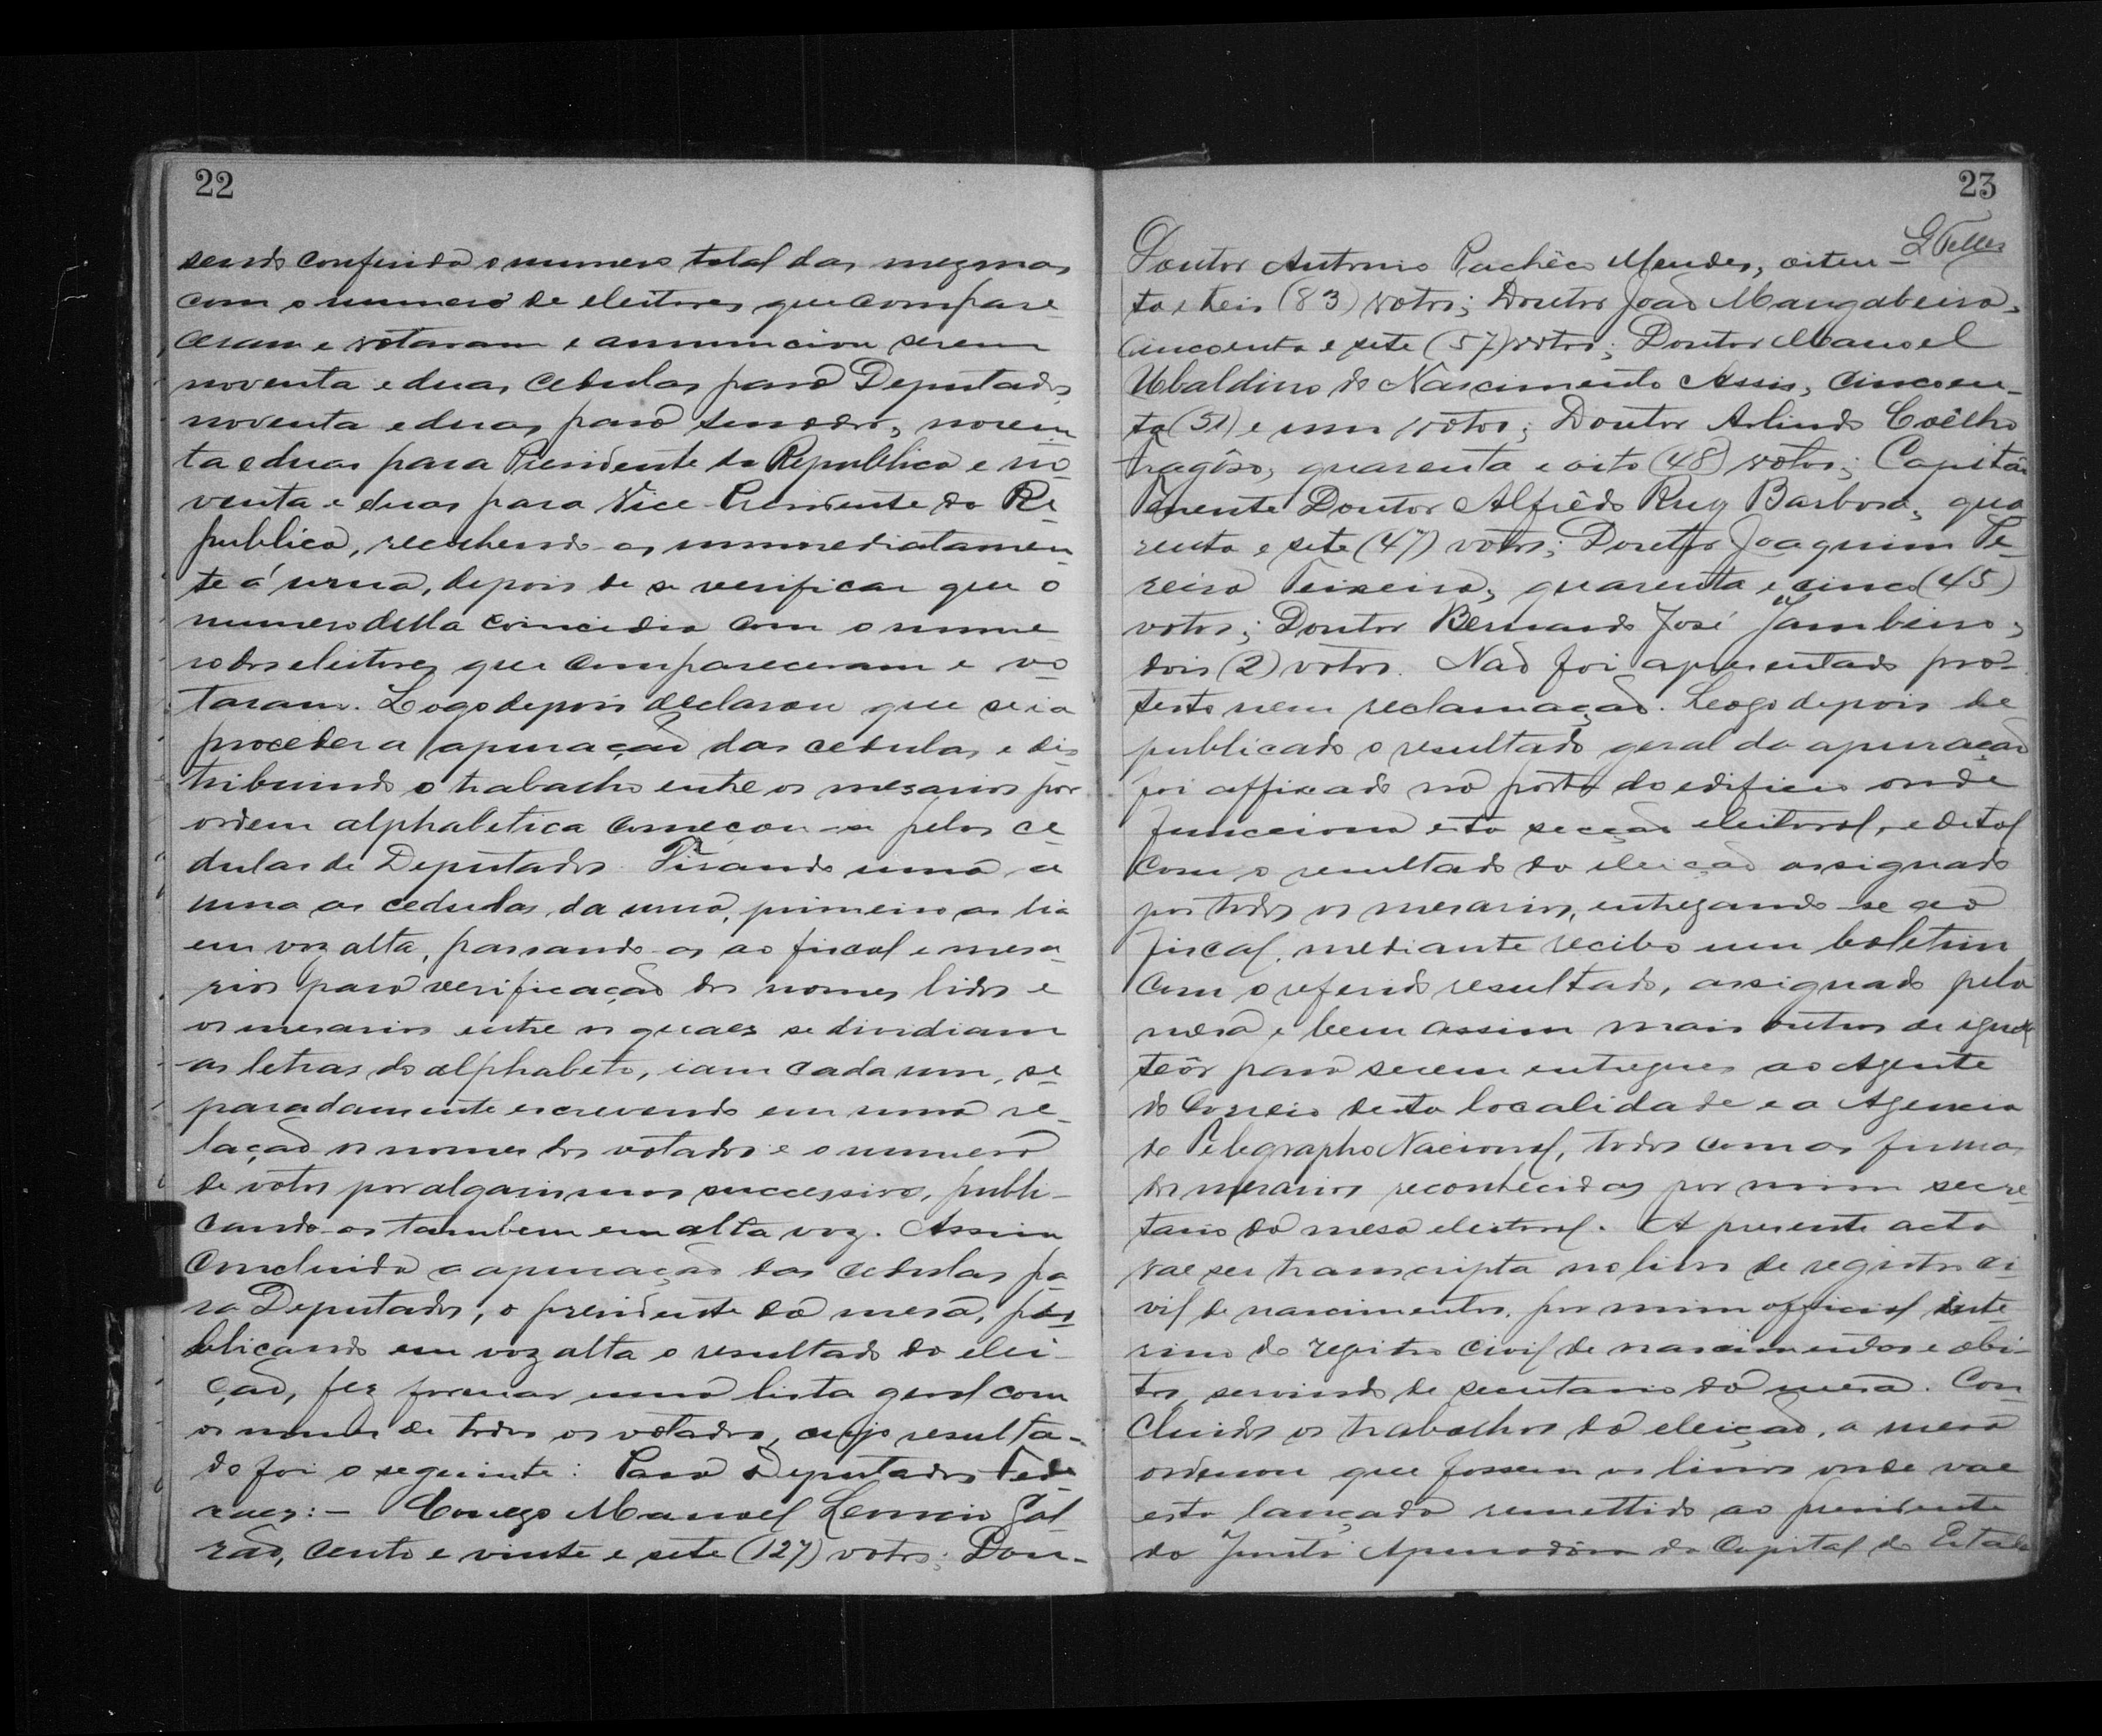 22
sendo conferido o numero total das mezmas
com o numero de eleitores que compare-
ceram e votaram e annunciou serem
noventa e duas cedulas para Deputados,
noventa e duas para senador, noven-
ta e duas para Presidente da Republica e no-
venta e duas para Vice-Presidente da Re-
publica, recolhendo-as immediatamen-
te á urna, depois de se verificar que o
numero della coincidia com o nume
ro dos eleitores que compareceram e vo-
taram. Logo depois declarou que se ia
proceder a apuração das cedulas e dis-
tribuindo o trabalho entre os mesarios por
ordem alphabetica começou-se pelas ce-
dulas de Deputados. Tirando uma a
uma as cedulas da urna, primeiro as lia
em voz alta, passando-as ao fiscal e mesa-
rios para verificação dos nomes lidos e
os mesarios entre os quaes se dividiam
as letras do alphabeto, iam cada um, se-
paradamente escrevendo em uma re-
lação os nomes dos votados e o numero
de votos por algarismos successivos, publi-
cando-os tambem em alta voz. Assim
concluida a apuração das cedulas pa-
ra Deputados, o presidente da mesa, pu-
blicando em voz alta o resultado da elei-
ção, fez formar uma lista geral com
os nomes de todos os votados, cujo resulta-
do foi o seguinte: Para Deputados Fede
raes:- Conego Manoel Leoncio Gal-
rão, cento e vinte e sete (127) votos; Dou-
23
G Telles
Doutor Antonio Pachêco Mendes, oiten-
ta e treis (83) votos; Doutor João Mangabeira,
cincoenta e sete (57) votos; Doutor Manoel
Ubaldino do Nascimento Assis, cincoen-
ta (51) e um votos; Doutor Arlindo Coêlho
Fragôso, quarenta e oito (48) votos; Capitão
Tenente Doutor Alfrêdo Ruy Barbosa, qua
renta e sete (47) votos; Doutor Joaquim Pe-
reira Teixeira, quarenta e cinco (45)
votos; Doutor Bernardo José Jambeiro,
dois (2) votos. Não foi apresentado pro-
testo nem reclamação. Leogo depois de
publicado o resultado geral da apuração
foi affixado na porta do edificio onde
funcciona esta secção eleitoral, edital
com o resultado da eleição assignado
por todos os mesarios, entregando-se ao
fiscal, mediante recibo um boletim
com o referido resultado, assignado pela
mesa e bem assim mais outros de igual
teôr para serem entregues ao Agente
do Correio desta localidade e a Agencia
do Telegrapho Nacional, todos com as firmas
dos mesarios reconhecidas por mim secre-
tario da mesa eleitoral. A presente acta
vae ser transcripta no livro de registro ci
vil de nascimentos, por mim official inte-
rino do registro civil de nascimentos e obi-
tos, servindo de secretario da mesa. Con-
cluidos os trabalhos da eleição, a mesa
ordenou que fossem os livros onde vae
esta lançada remettido ao presidente
da Junta Apuradôra da Capital do Estado